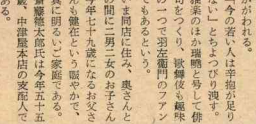 がわれる。
今の若い人は辛抱が足り
ない」とちよつぴり洩す。
接茶のほか瑞聰と号して俳
句をつくり、歌舞伎も趣味
の一つで羽左衛門のフアン
でもあるという。
ま同店に住み、奥さんと
の間に二男二女のお子さん
今年七十九歳になるお父さ
んも健在という賑やかで、
真に明るいご家庭である。
斎藤徳太郎氏は今年五十五
歳、中津屋本店の支配人で
ある。